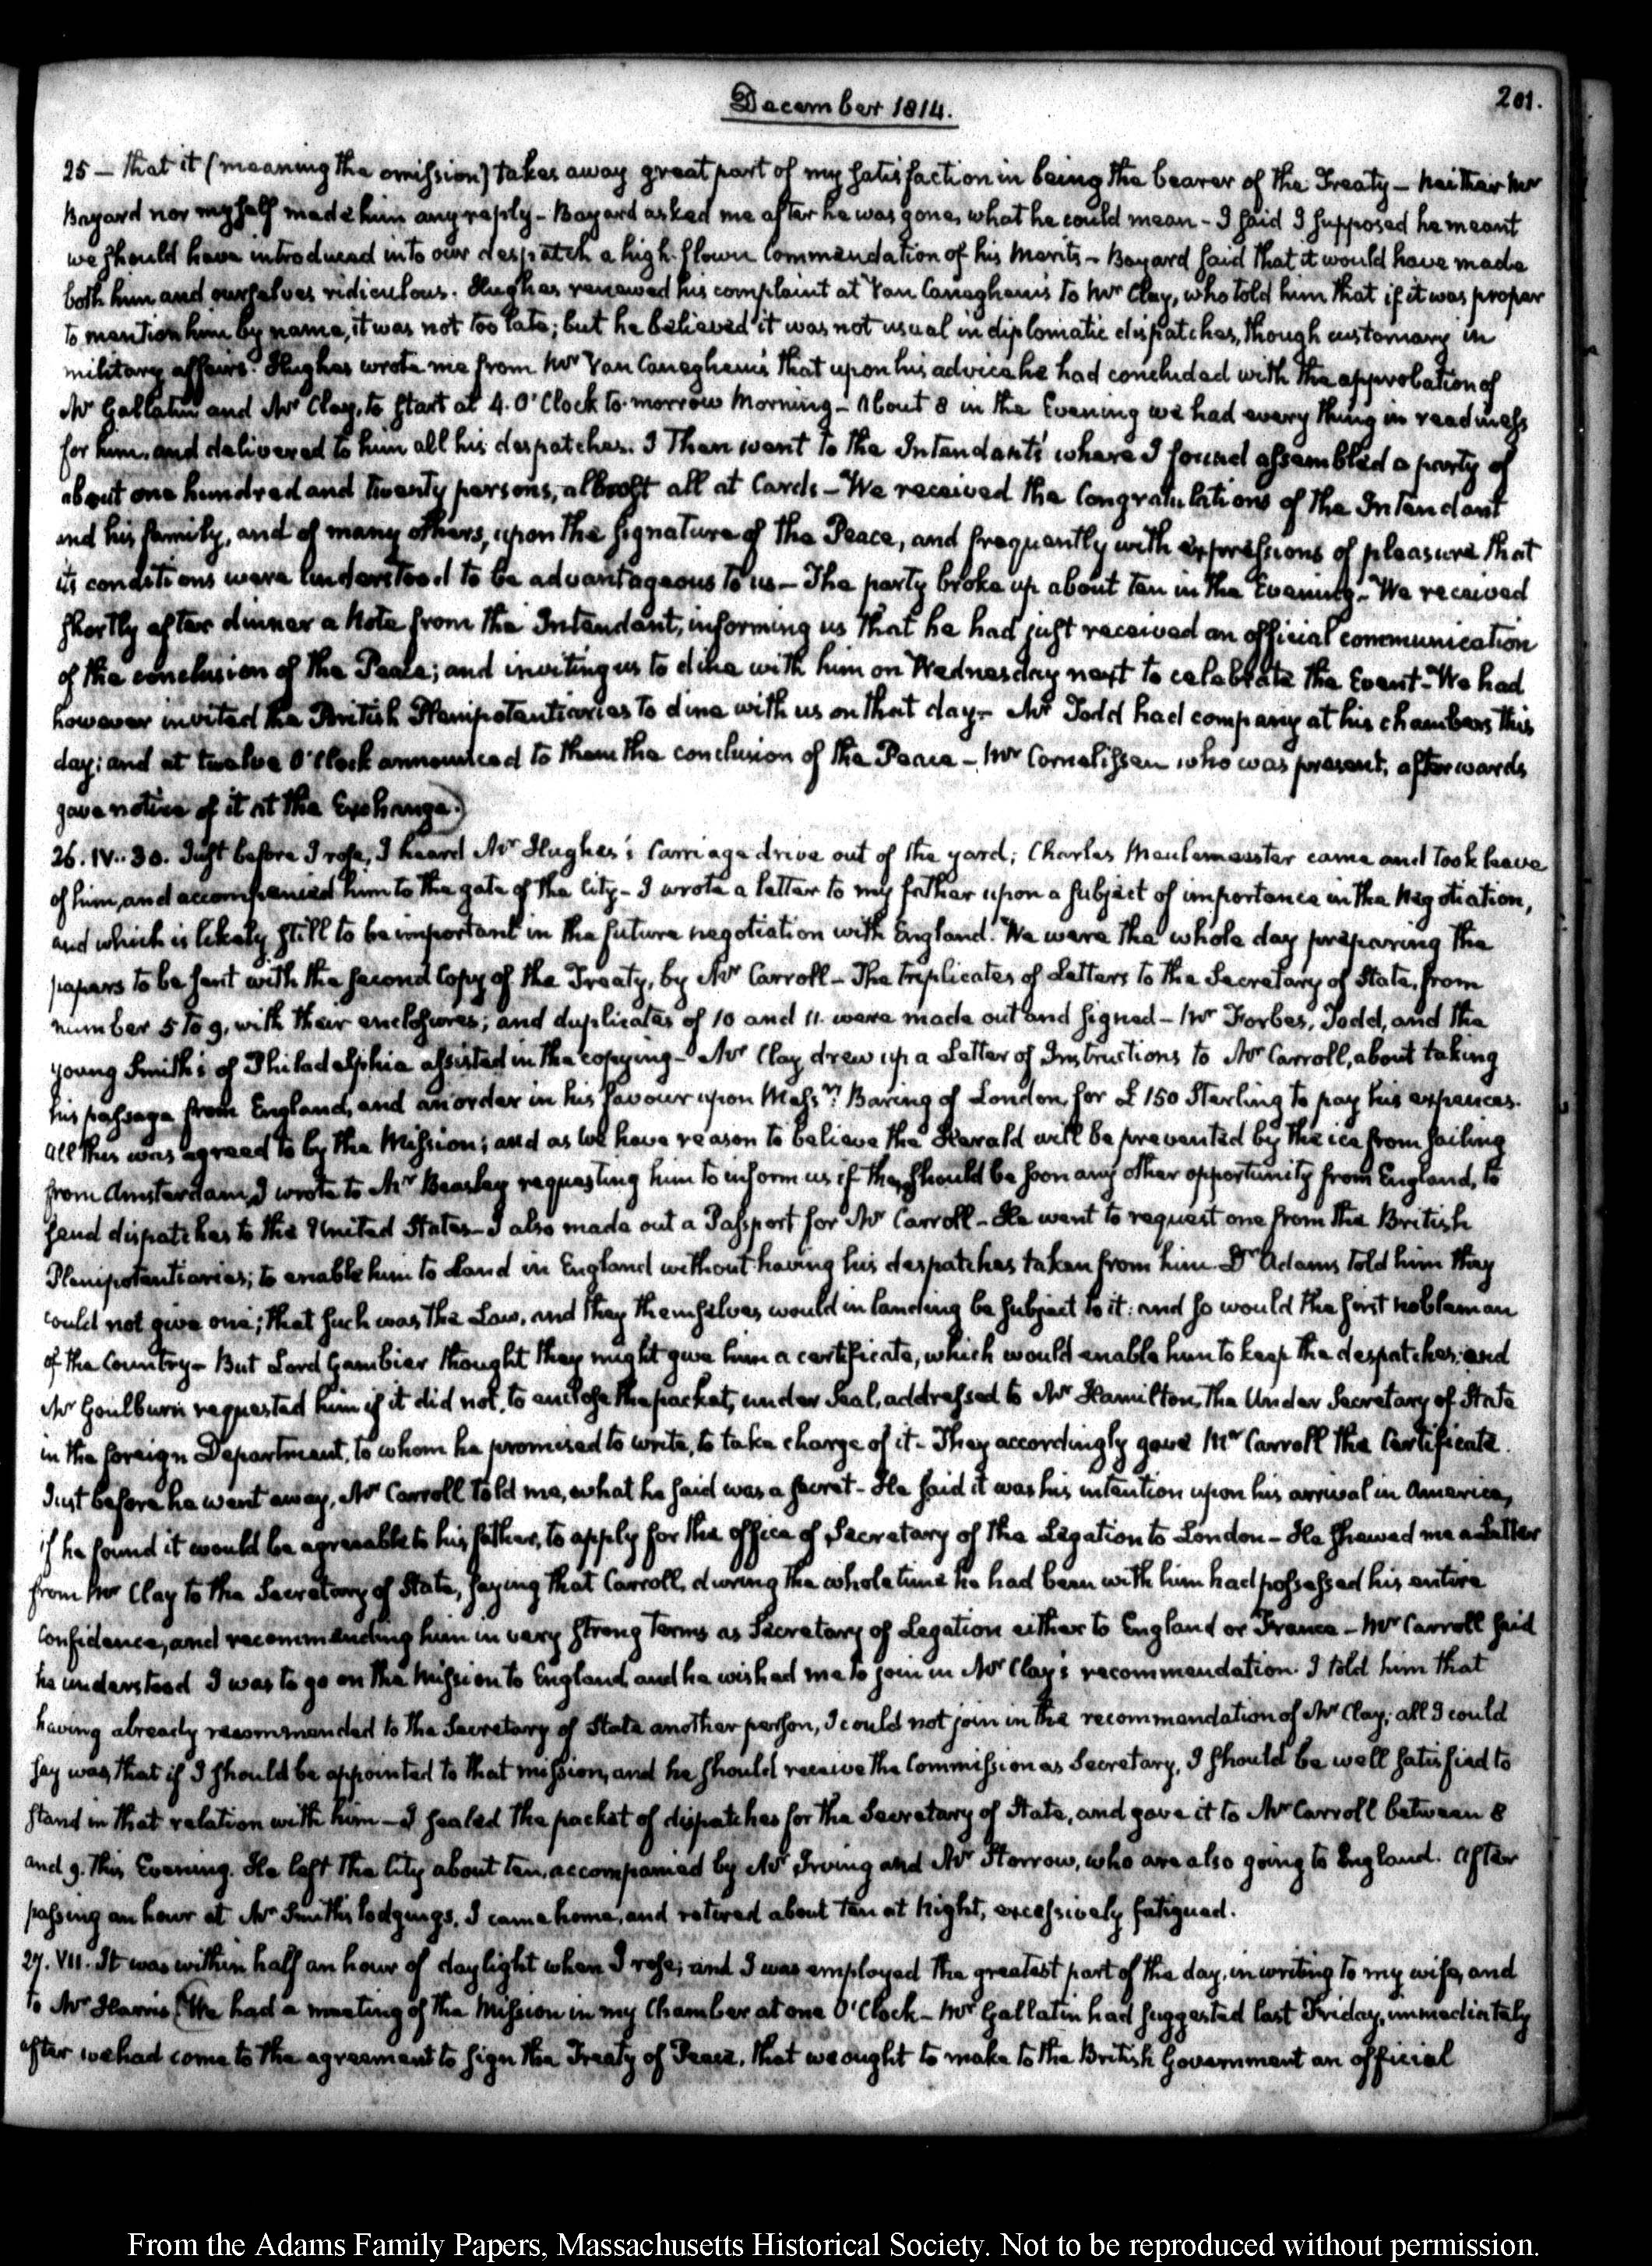 December 1814.
201.
25 — that it (meaning the omission) takes away great part of my satisfaction in being the bearer of the Treaty — Neither Mr
Bayard nor myself made him any reply — Bayard asked me after he was gone, what he could mean — I said I supposed he meant
we should have introduced into our despatch a high-flown Commendation of his Merits — Bayard said that it would have made
both him and ourselves ridiculous. Hughes renewed his complaint at Van Caneghem's to Mr Clay, who told him that if it was proper
to mention him by name, it was not too late; but he believed it was not usual in diplomatic dispatches, though customary in
military affairs. Hughes wrote me from Mr Van Caneghem's that upon his advice he had concluded with the approbation of
Mr Gallatin and Mr Clay, to start at 4. O'Clock to-morrow Morning — About 8 in the Evening we had every thing in readiness
for him, and delivered to him all his despatches. I then went to the Intendant's where I found assembled a party of
about one hundred and twenty persons, almost all at Cards — We received the Congratulations of the Intendant
and his family, and of many others, upon the signature of the Peace, and frequently with expressions of pleasure that
its conditions were understood to be advantageous to us — The party broke up about ten in the Evening — We received
shortly after dinner a Note from the Intendant, informing us that he had just received an official communication
of the conclusion of the Peace; and inviting us to dine with him on Wednesday next to celebrate the Event — We had
however invited the British Plenipotentiaries to dine with us on that day — Mr Todd had company at his chambers this
day; and at twelve O'Clock announced to them the conclusion of the Peace — Mr Cornelissen who was present, afterwards
gave notice of it at the Exchange.)
26. IV..30. Just before I rose, I heard Mr Hughes's Carriage drive out of the yard; Charles Meulemeester came and took leave
of him, and accompanied him to the gate of the City — I wrote a letter to my father upon a subject of importance in the Negotiation,
and which is likely still to be important in the future negotiation with England. We were the whole day preparing the
papers to be sent with the second Copy of the Treaty, by Mr Carroll — The triplicates of Letters to the Secretary of State, from
number 5 to 9, with their enclosures; and duplicates of 10 and 11. were made out and signed — Mr Forbes, Todd, and the
young Smith's of Philadelphia assisted in the copying — Mr Clay drew up a Letter of Instructions to Mr Carroll, about taking
his passage from England, and an order in his favour upon Messrs Baring of London, for £150 Sterling to pay his expences.
All this was agreed to by the Mission; and as we have reason to believe the Herald will be prevented by the ice from sailing
from Amsterdam, I wrote to Mr Beasley requesting him to inform us if they should be soon any other opportunity from England, to
send dispatches to the United States — I also made out a Passport for Mr Carroll — He went to request one from the British
Plenipotentiaries; to enable him to Land in England without having his despatches taken from him. Dr Adams told him they
could not give one; that such was the Law, and they themselves would in landing be subject to it: and so would the first Nobleman
of the Country — But Lord Gambier thought they might give him a certificate, which would enable him to keep the despatches; and
Mr Goulburn requested him if it did not, to enclose the packet, under Seal, addressed to Mr Hamilton, the Under Secretary of State
in the foreign Department, to whom he promised to write, to take charge of it — They accordingly gave Mr Carroll the Certificate.
Just before he went away, Mr Carroll told me, what he said was a secret — He said it was his intention upon his arrival in America,
if he found it would be agreeable to his father, to apply for the office of Secretary of the Legation to London — He shewed me a Letter
from Mr Clay to the Secretary of State, saying that Carroll, during the whole time he had been with him had possessed his entire
confidence, and recommending him in very strong terms as Secretary of Legation either to England or France — Mr Carroll said
he understood I was to go on the Mission to England and he wished me to join in Mr Clay's recommendation. I told him that
having already recommended to the Secretary of State another person, I could not join in the recommendation of Mr Clay; all I could
say was, that if I should be appointed to that mission, and he should receive the Commission as Secretary, I should be well satisfied to
stand in that relation with him — I sealed the packet of dispatches for the Secretary of State, and gave it to Mr Carroll between 8
and 9. this Evening. He left the City about ten, accompanied by Mr Irving and Mr Storrow, who are also going to England. After
passing an hour at Mr Smith's lodgings, I came home, and retired about ten at Night, excessively fatigued.
27. VII. It was within half an hour of daylight when I rose; and I was employed the greatest part of the day, in writing to my wife, and
to Mr Harris (We had a meeting of the Mission in my Chamber at one O'Clock — Mr Gallatin had suggested last Friday, immediately
after we had come to the agreement to sign the Treaty of Peace, that we ought to make to the British Government an official
From the Adams Family Papers, Massachusetts Historical Society. Not to be reproduced without permission.